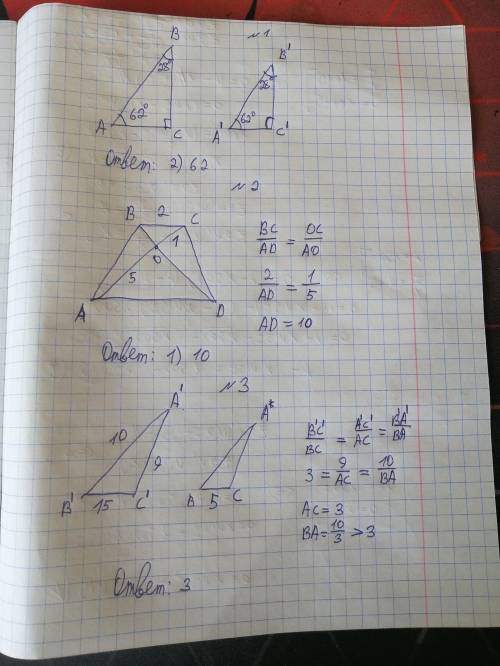 №1
B
28°
62°
A
C
B'
28°
62°
A'
C'
Ответ: 2) 62
№2
B 2 C
1
O
5
A
D
BC/AD = OC/AO
2/AD = 1/5
AD = 10
Ответ: 1) 10
№3
A'
10
9
B' 15 C'
A
B 5 C
B'C'/BC = A'C'/AC = B'A'/BA
3 = 9/AC = 10/BA
AC = 3
BA = 10/3 > 3
Ответ: 3